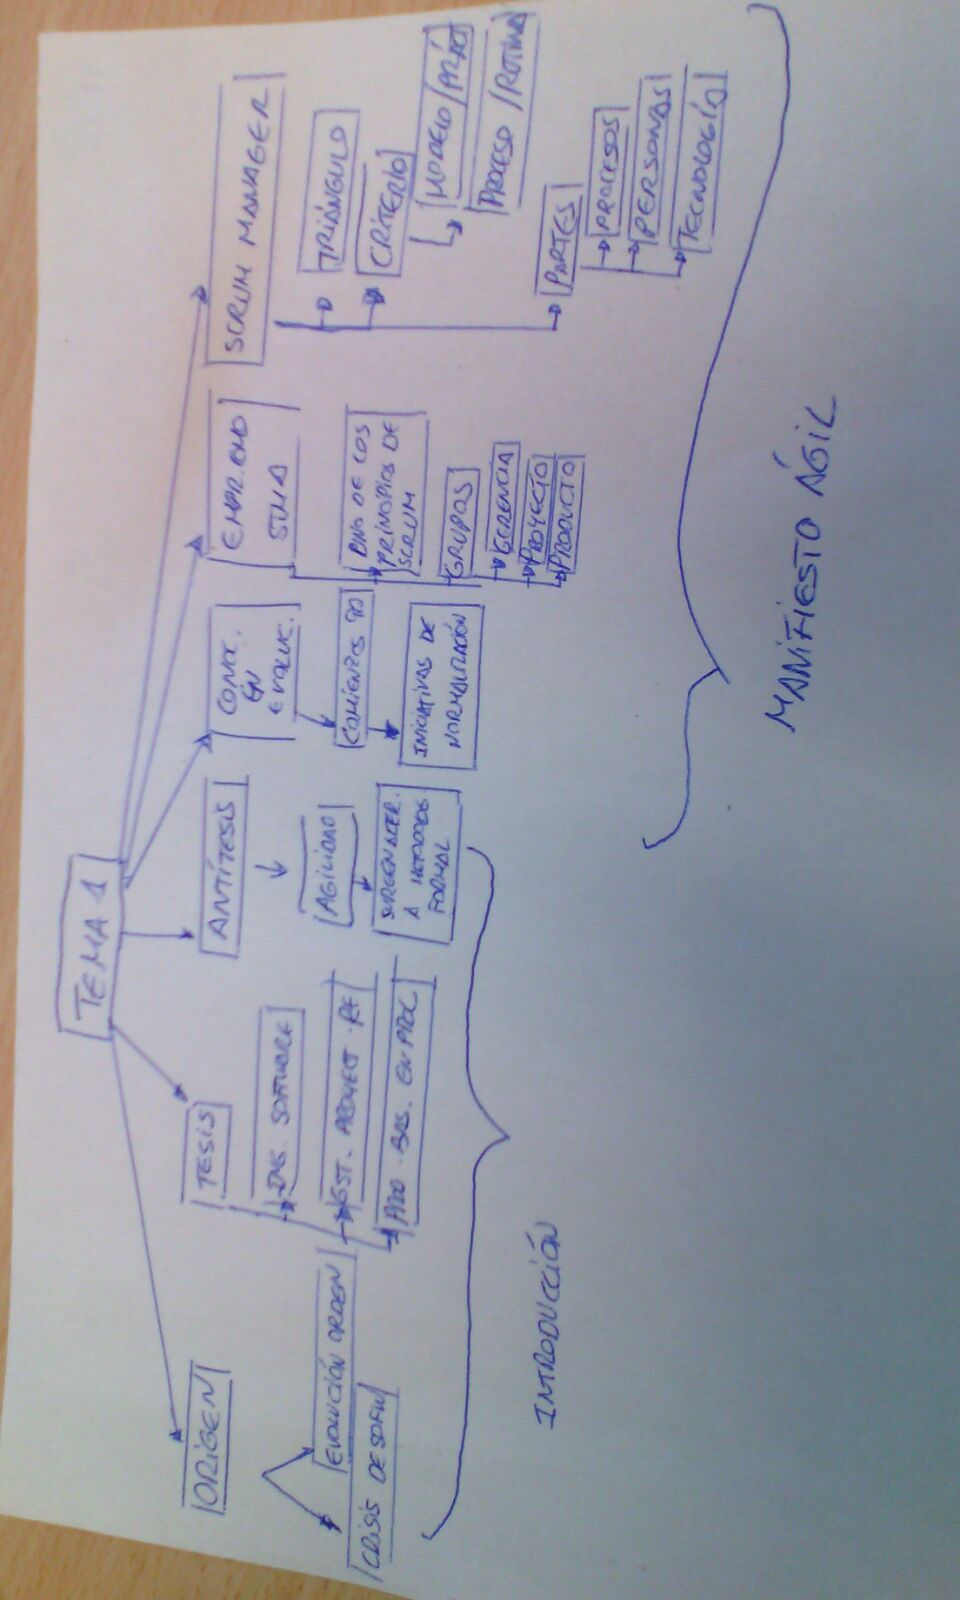 TEMA 1
ORIGEN
EVOLUCIÓN ORDEN
CRISIS DE SOFW
TESIS
ING. SOFTWARE
GST. PROYECT. PRE
PROD. BAS. EN PROC
ANTÍTESIS
AGILIDAD
SURGEN ALTER.
A METODOS
FORMAL
INTRODUCCIÓN
CONOC.
EN
EVOLUC.
COMIENZOS 90
INICIATIVAS DE
NORMALIZACIÓN
EMPR. COMO
SIMA
UNO DE LOS
PRINCIPIOS DE
SCRUM
GRUPOS
GERENCIA
PROYECTO
PRODUCTO
SCRUM MANAGER
TRIÁNGULO
CRITERIO
MODELO / PRÁCT
PROCESO / RUTINA
PARTES
PROCESOS
PERSONAS
TECNOLOGÍA
MANIFIESTO ÁGIL